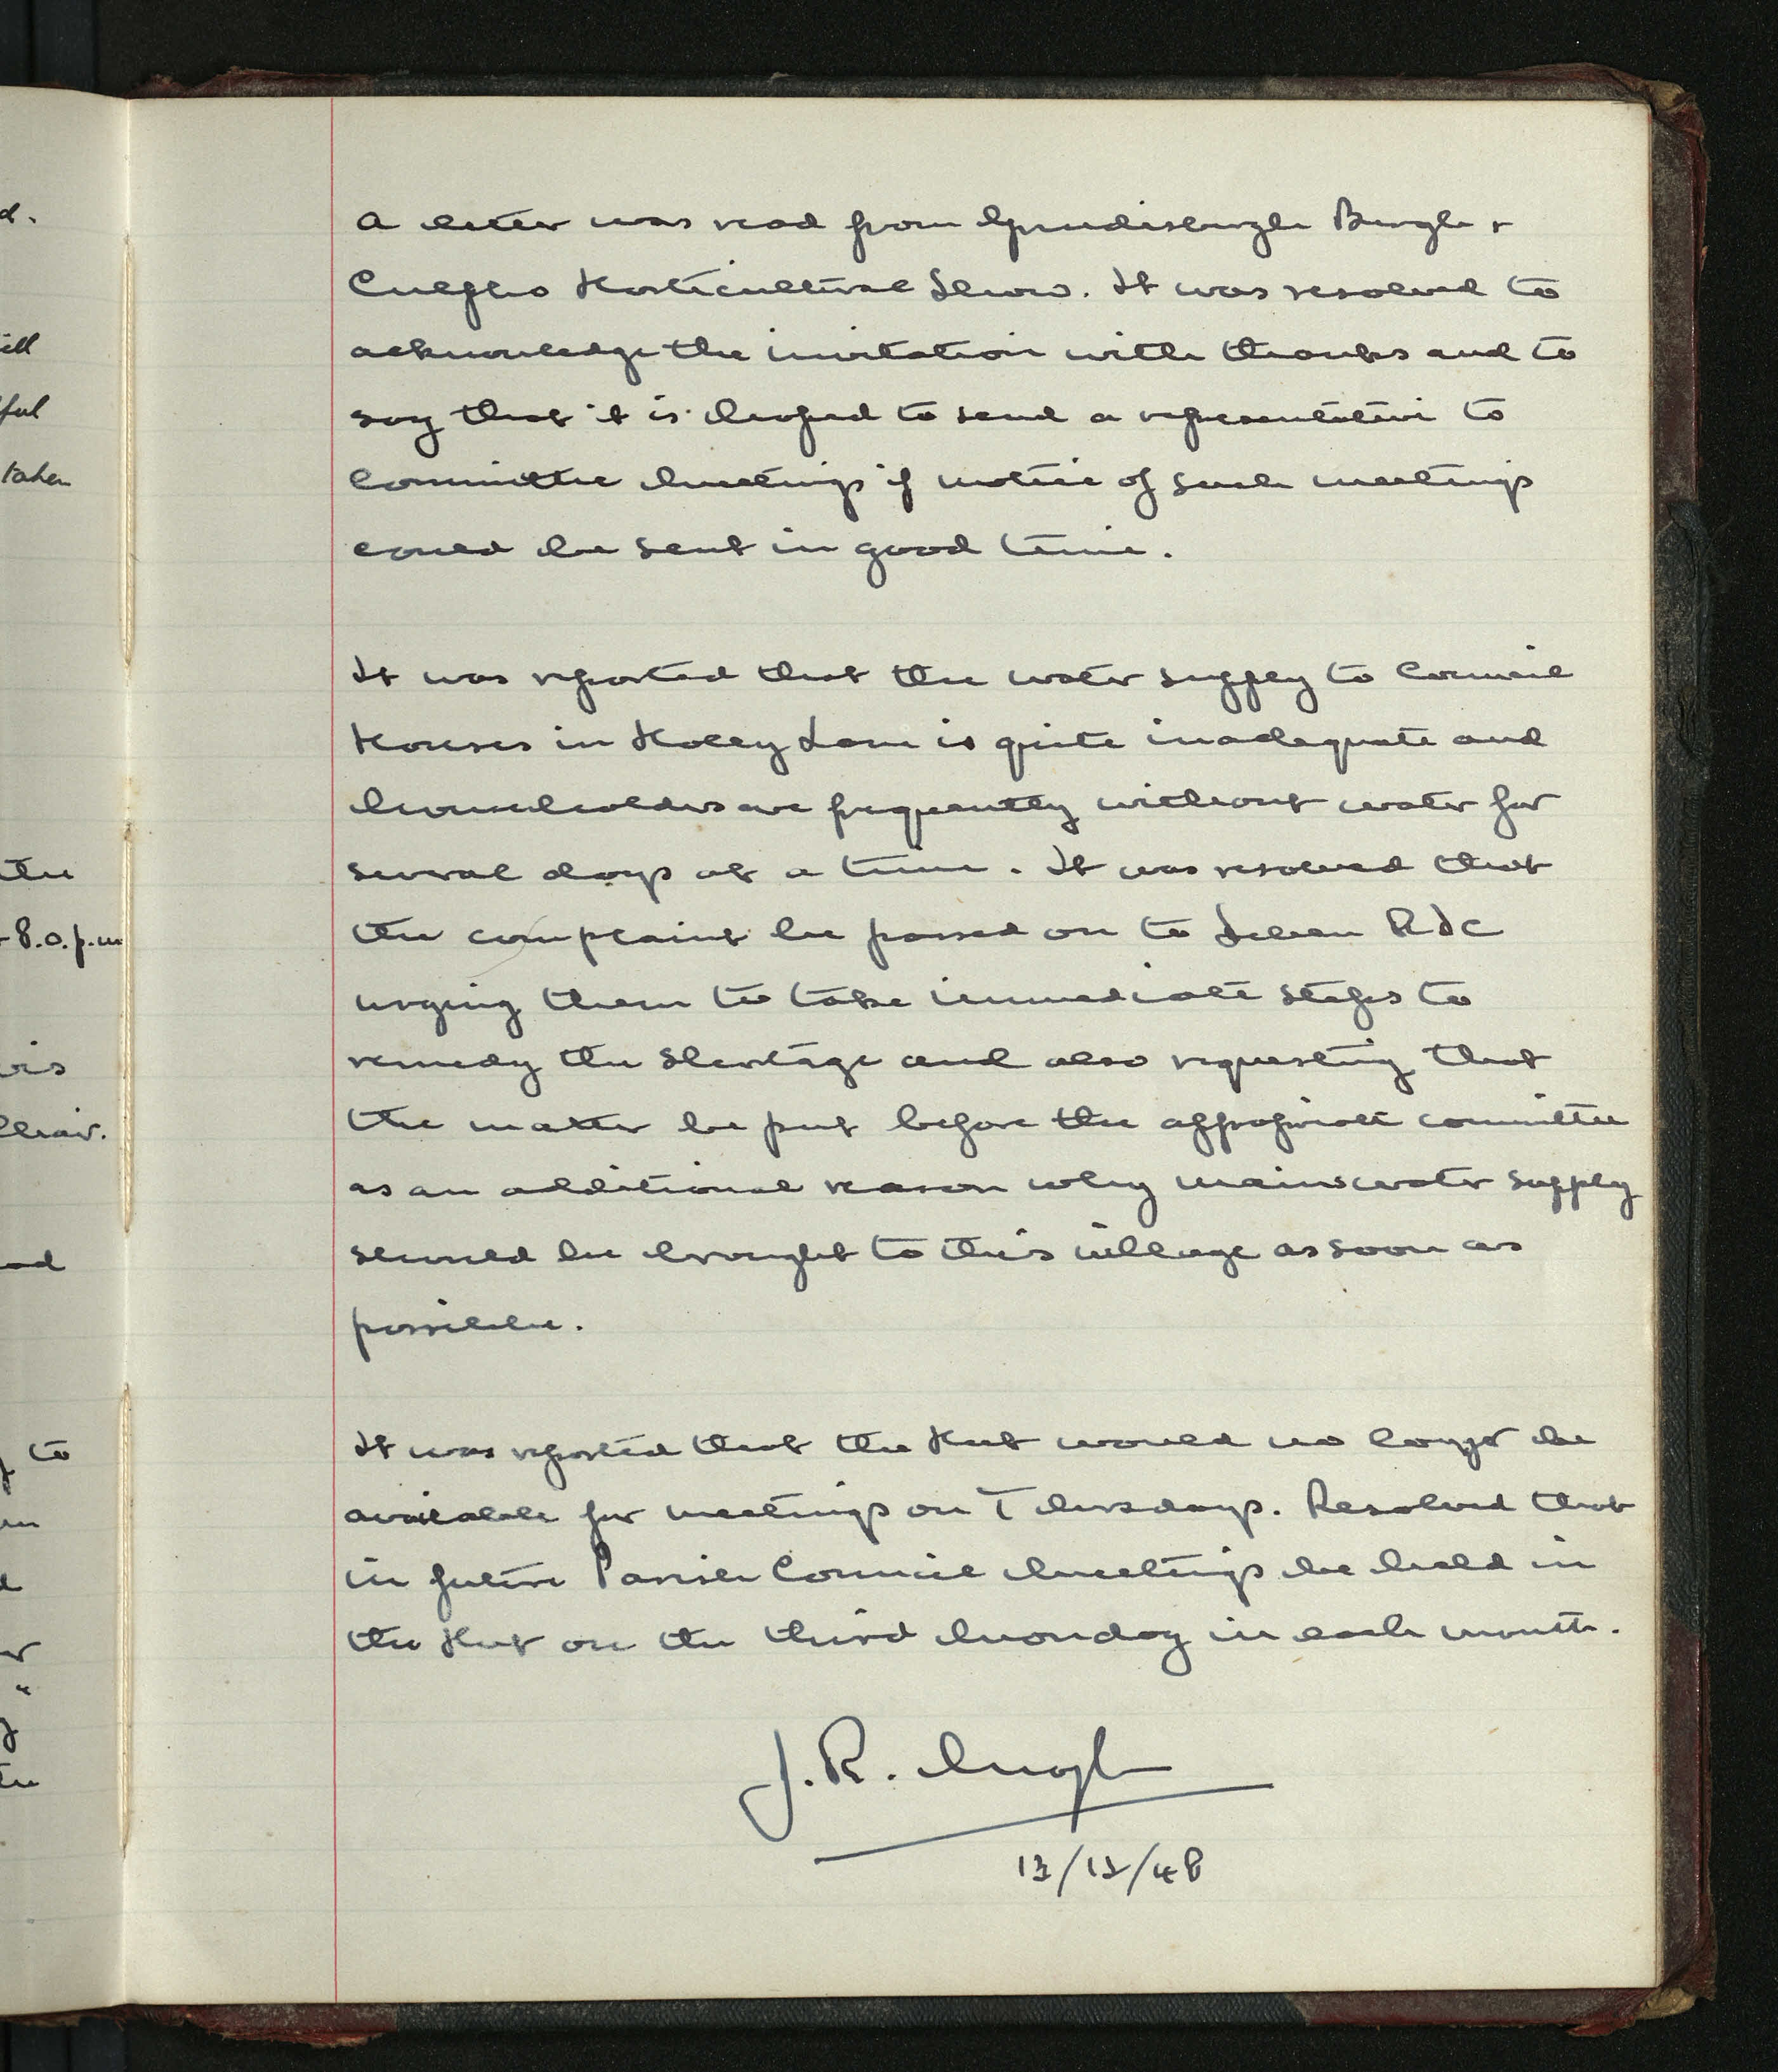 d.
ill
ful
taken
the
8.0.p.m
to
A letter was read from Grundisburgh Burgh +
Culpho Horticultural Show. It was resolved to
acknowledge the invitation with thanks and to
say that it is hoped to send a representative to
Committee Meetings if notice of such meetings
could be sent in good time.
It was reported that the water supply to Council
Houses in Holly Lane is quite inadequate and
householders are frequently without water for
several days at a time. It was resolved that
the complaint be passed on to Deben RDC
urging them to take immediate steps to
remedy the shortage and also requesting that
the matter be put before the appropriate committee
as an additional reason why mains water supply
should be brought to this village as soon as
possible.
It was reported that the Hut would no longer be
available for meetings on Thursdays. Resolved that
in future Parish Council Meetings be held in
the Hut on the third Monday in each month.
J. R.
13/12/48